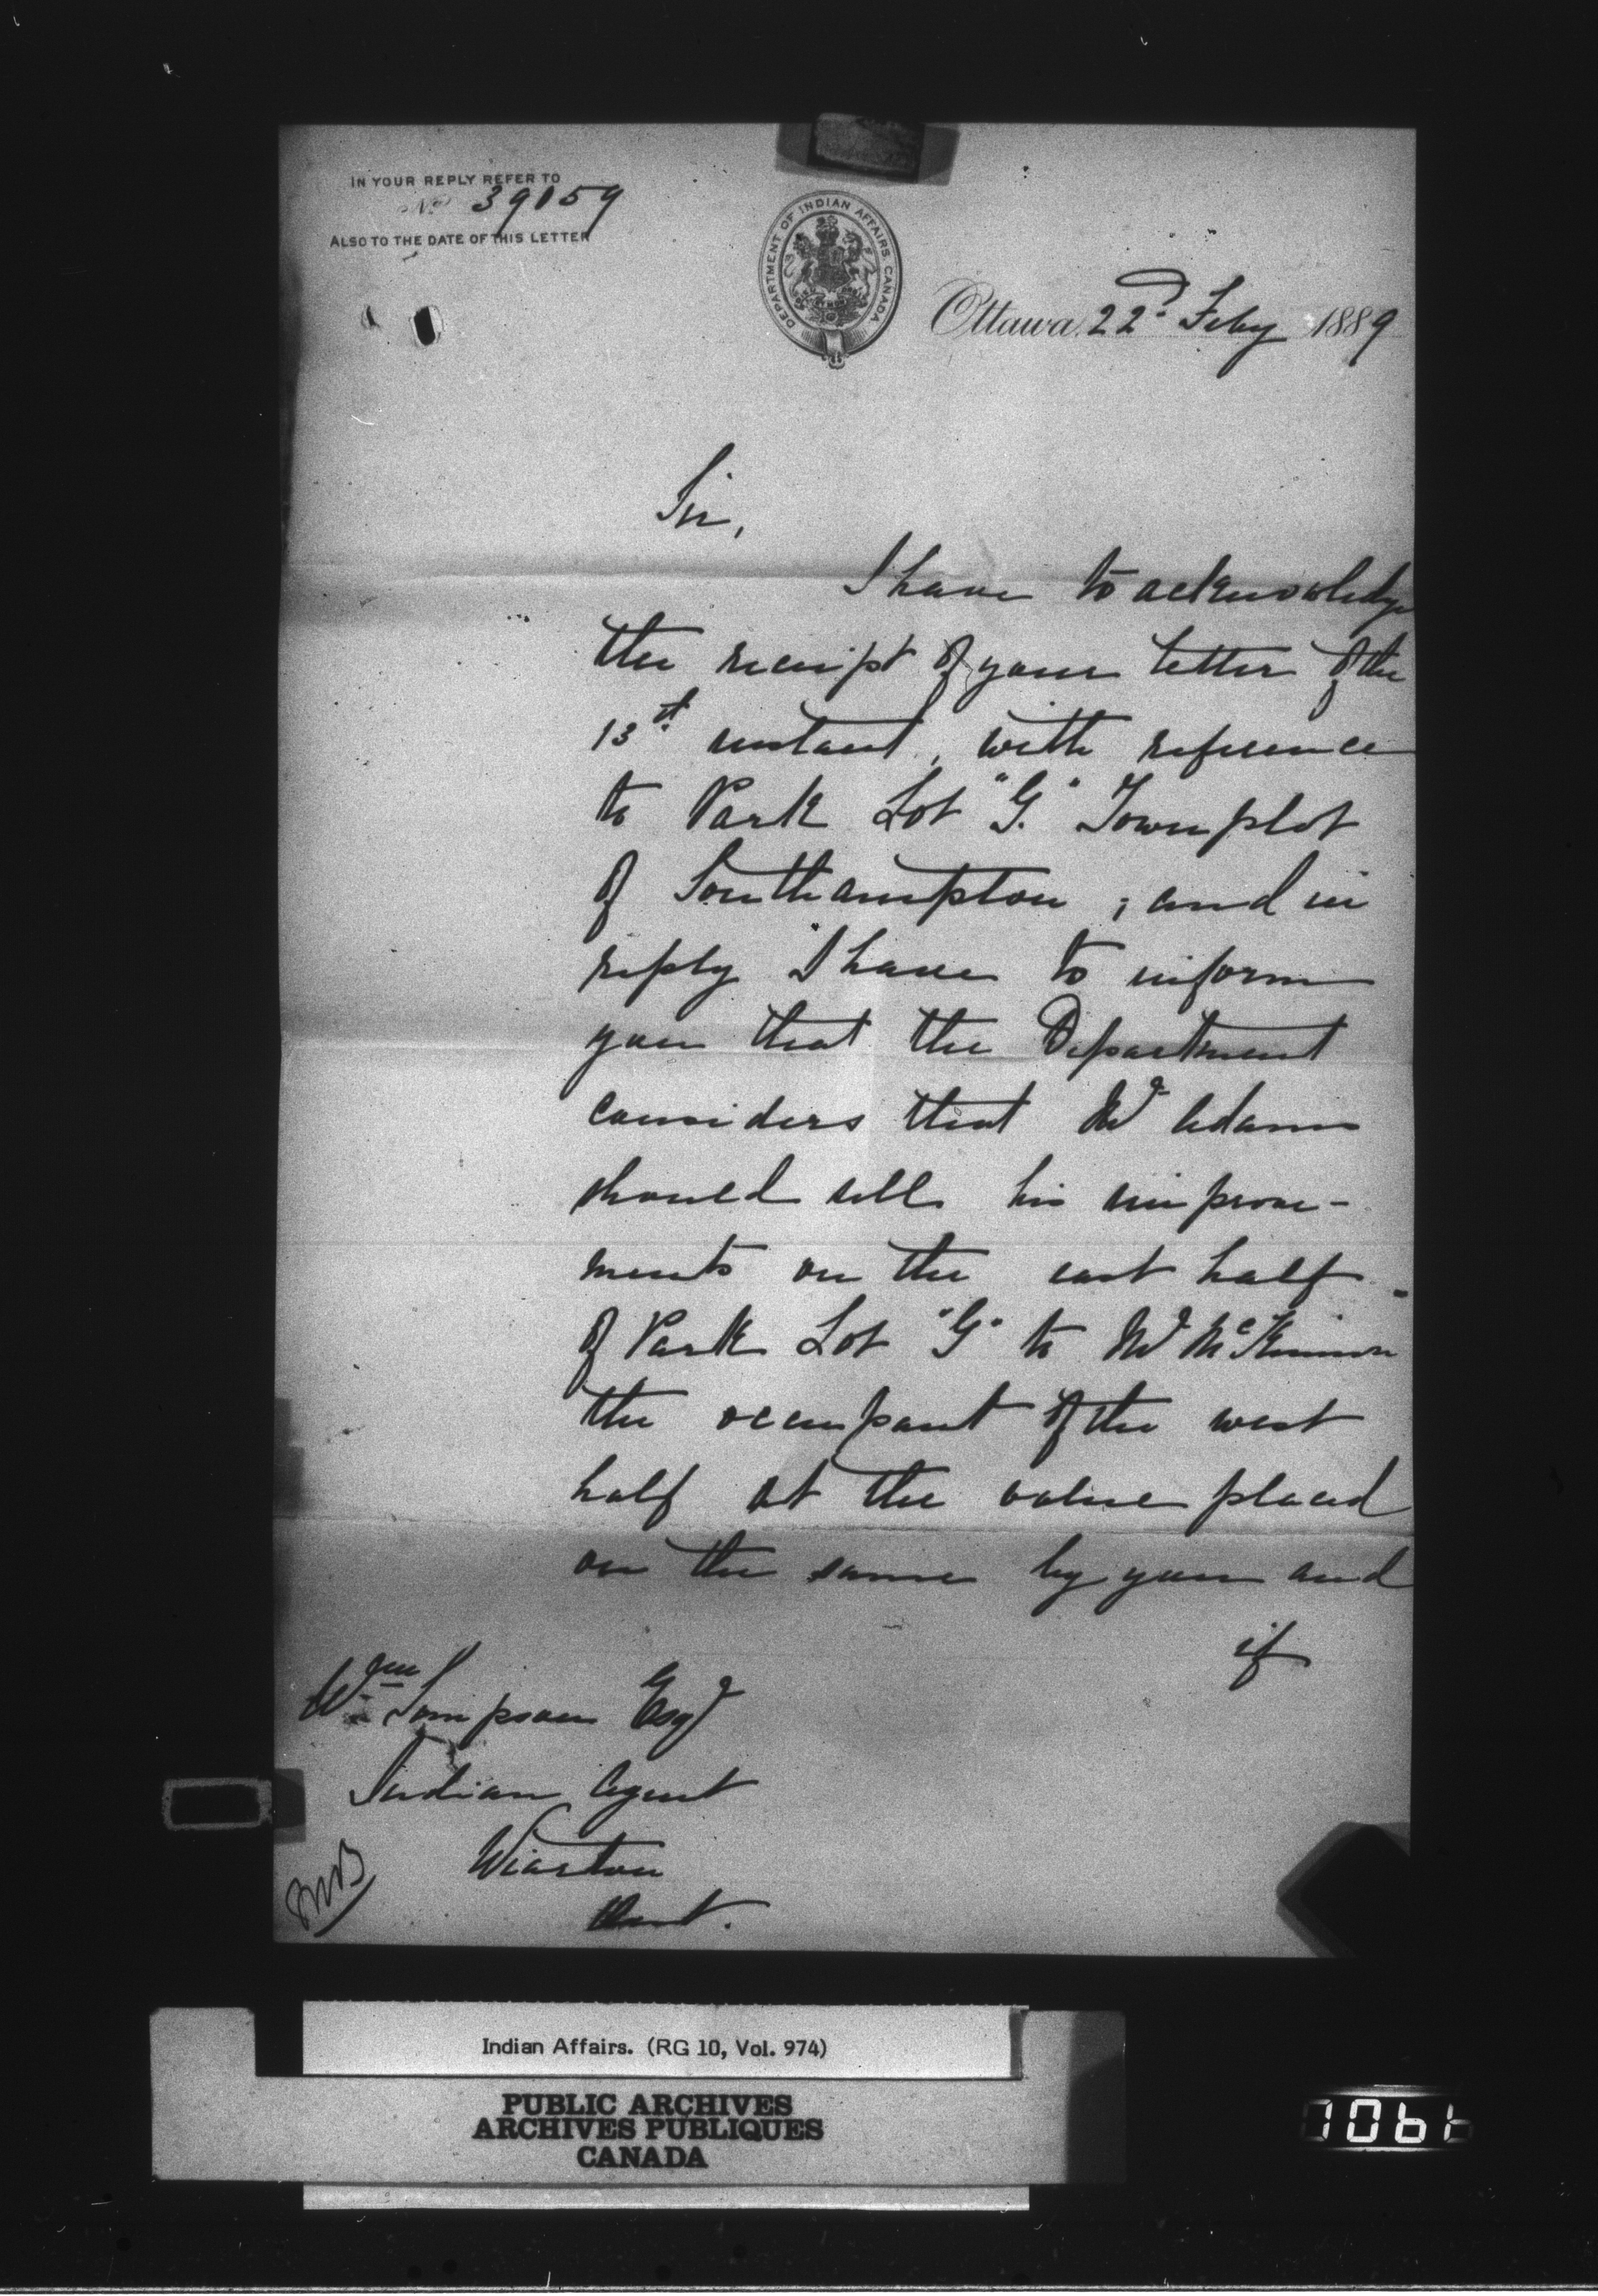 IN YOUR REPLY REFER TO
No 39159
ALSO TO THE DATE OF THIS LETTER
DEPARTMENT OF INDIAN AFFAIRS. CANADA
Ottawa 22d Feby 1889
Sir,
I have to acknowledge
the receipt of your letter of the
13th instant, with reference
to Park Lot "G." Town plot
of Southampton; and in
reply I have to inform
you that the Department
considers that Mr Adams
should sell his improve-
ments on the east half
of Park Lot "G" to Mr McKinnon
the occupant of the west
half at the value placed
on the same by you and
if
Wm Simpson Esqr
Indian Agent
Wiarton
Ont.
Indian Affairs. (RG 10, Vol. 974)
PUBLIC ARCHIVES
ARCHIVES PUBLIQUES
CANADA